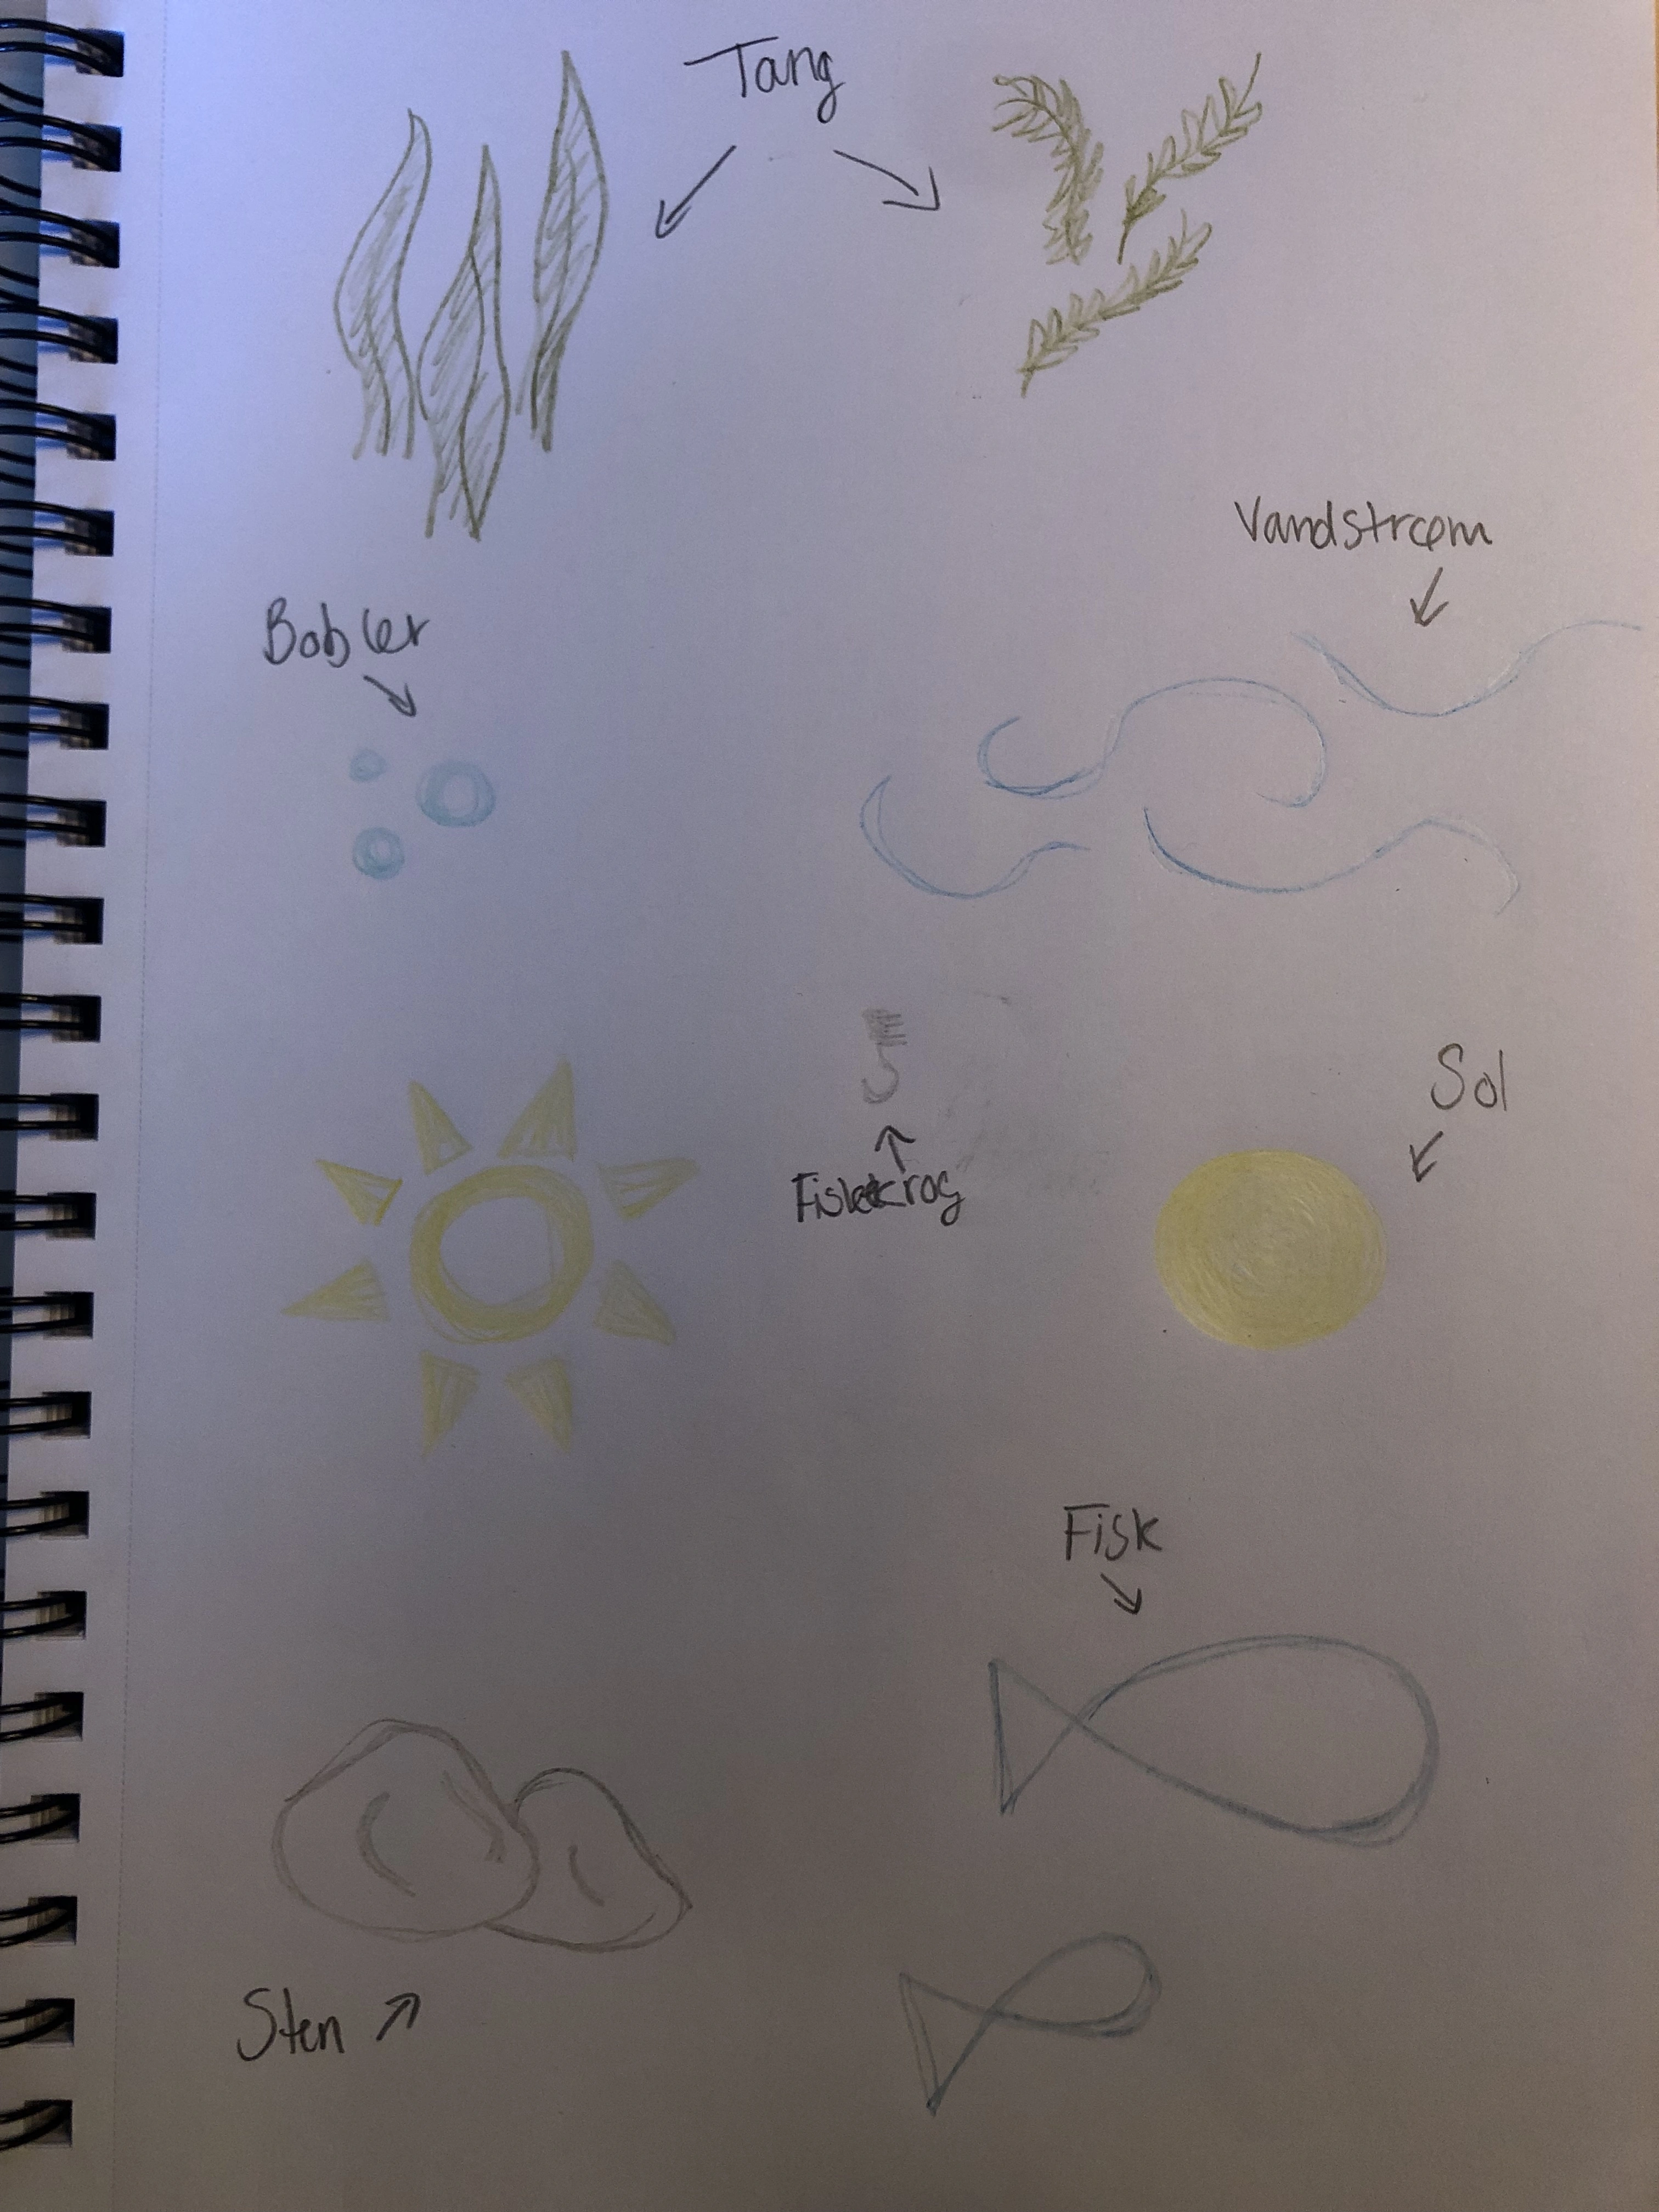 Tang
Vandstrøm
Bobler
Sol
Fiskekrog
Fisk
Sten